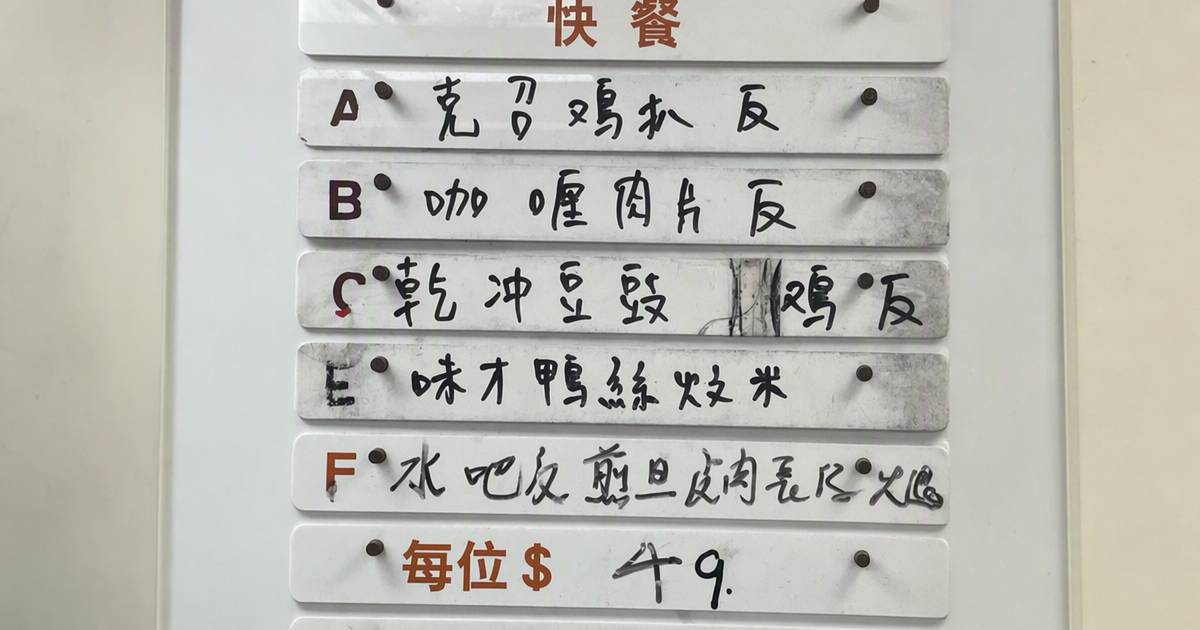 快餐
A 克召鸡扒反
B 咖喱肉片反
C 乾冲豆豉鸡反
E 味才鴨絲炆米
F 水吧反煎旦皮肉長反火腿
每位$ 49.